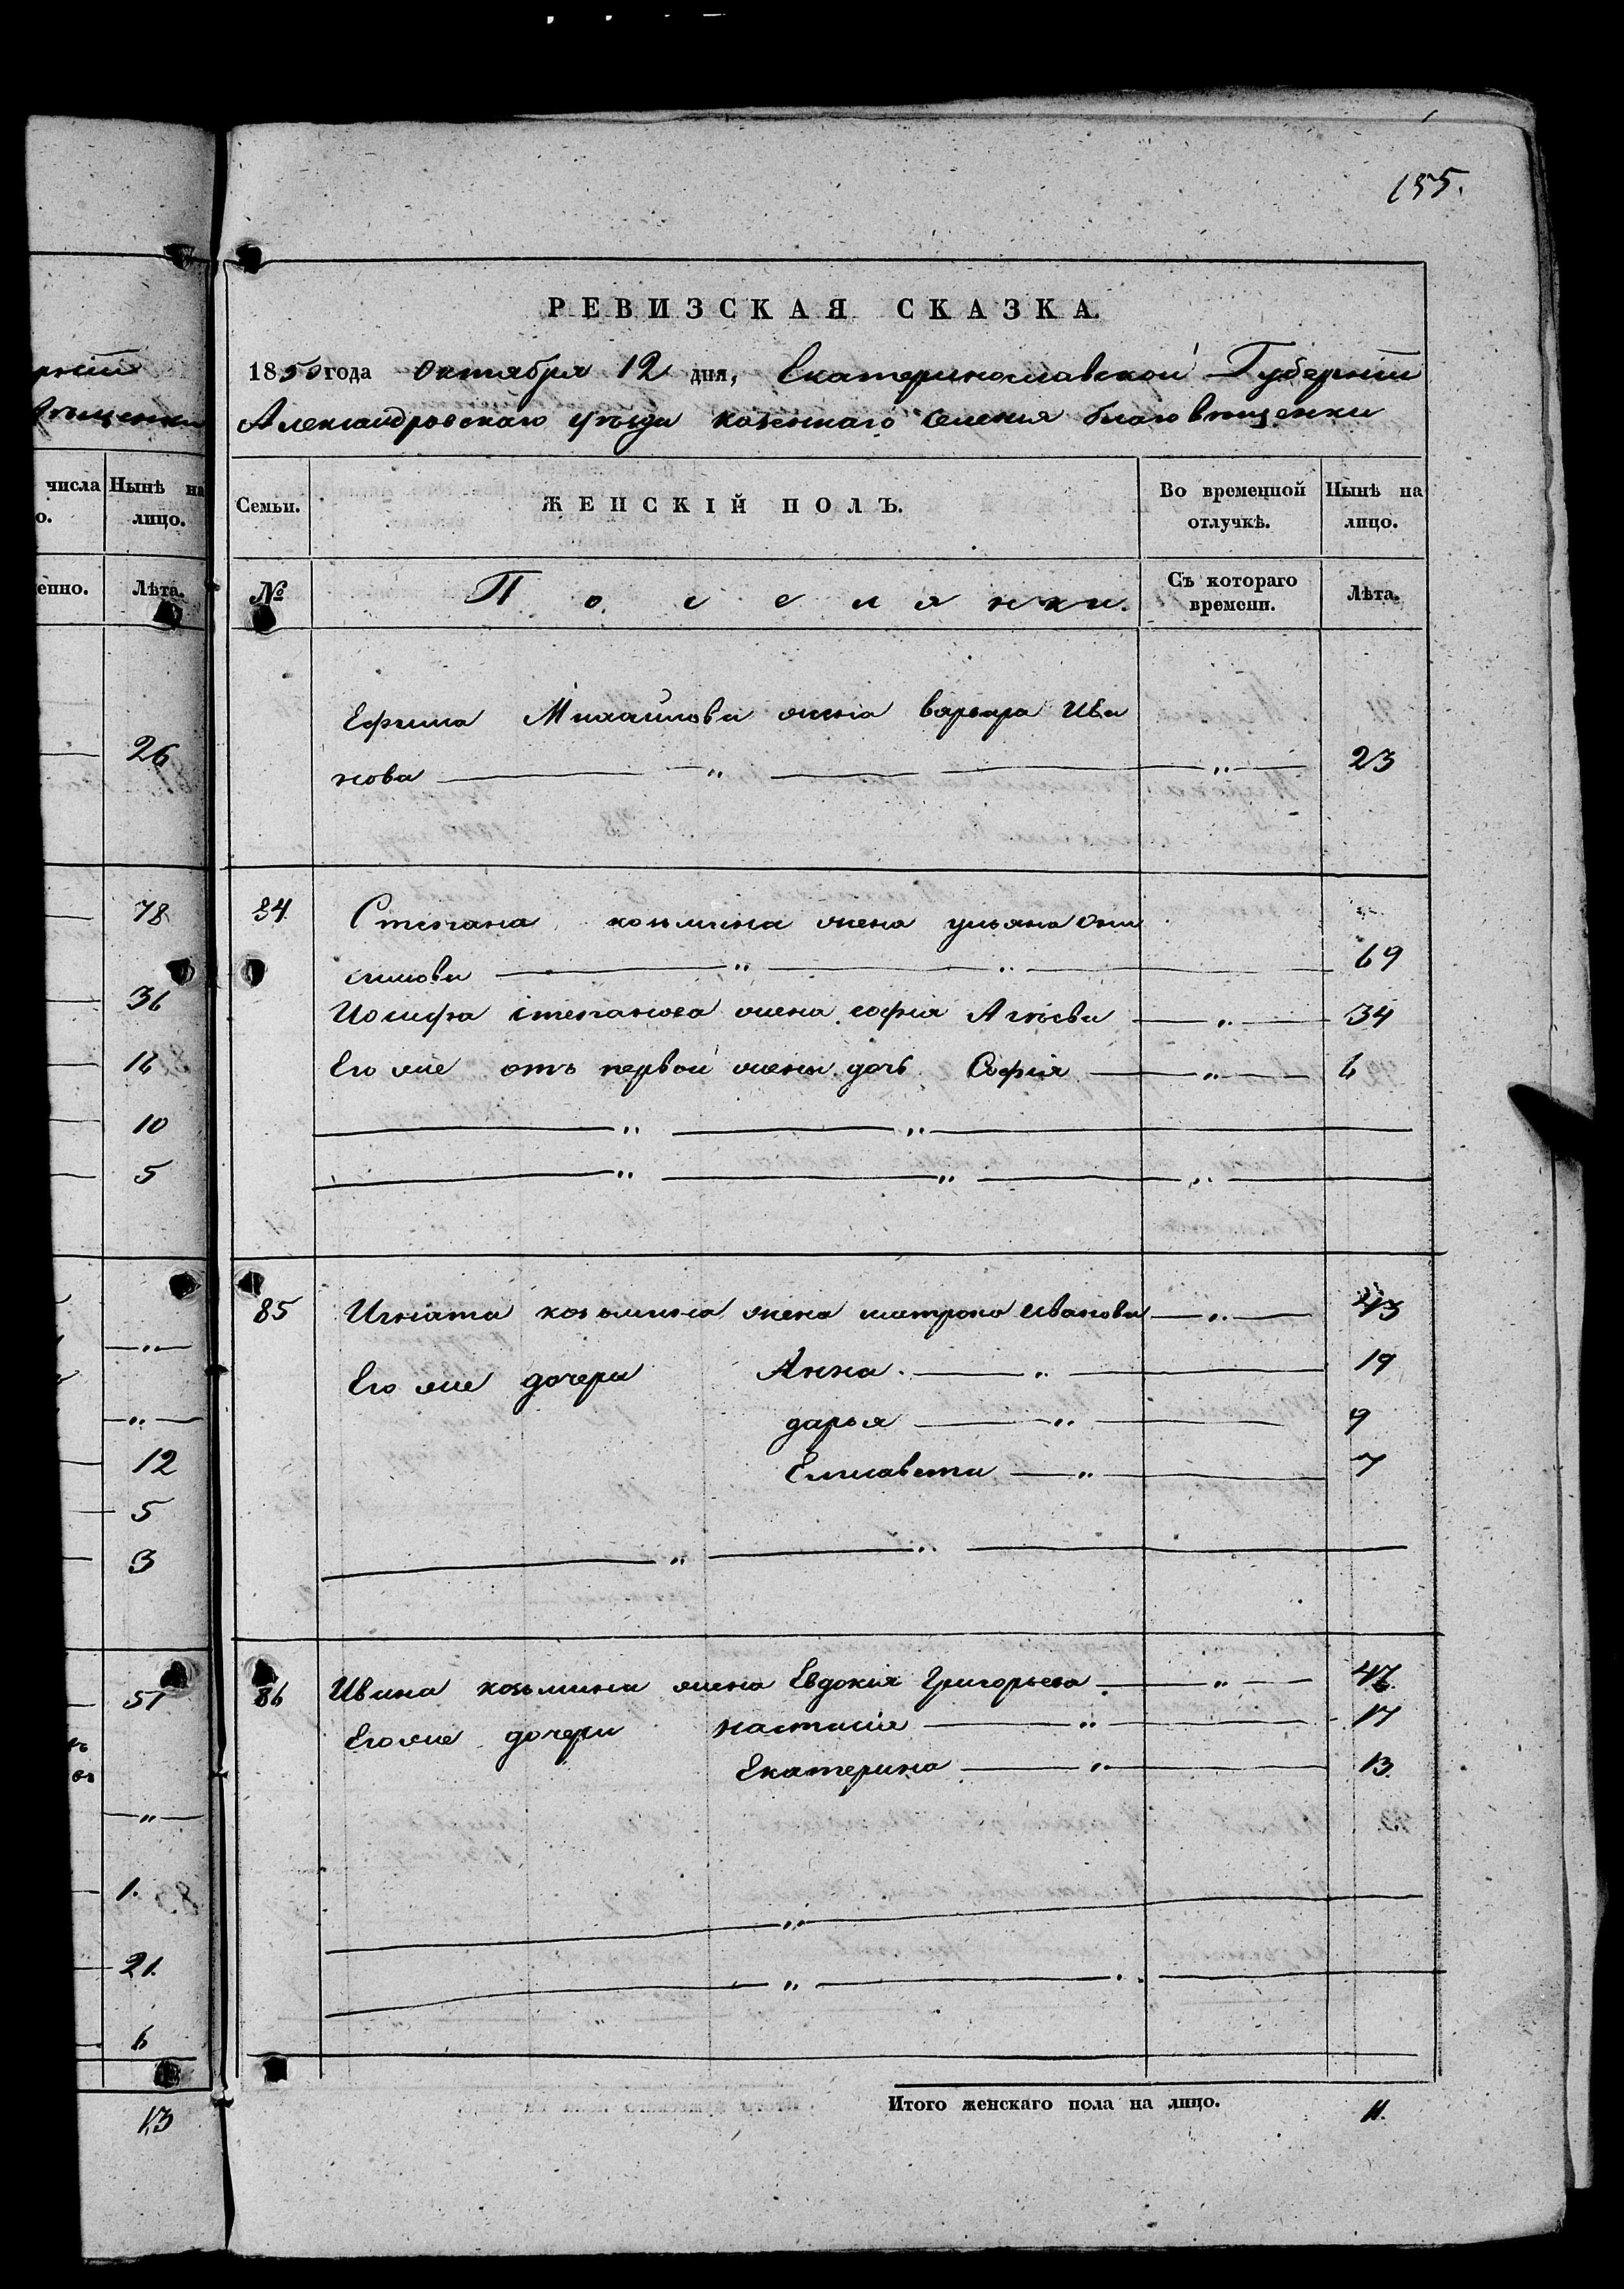 155.
РЕВИЗСКАЯ СКАЗКА.
1850 года октября 12 дня, Екатеринославской Губерніи
Александровскаго уѣзда казеннаго селенія благовѣщенки
числа
Нынѣ на лицо.
Лѣта.
26
78
36
16
10
5
12
5
3
51
1.
21.
6
13
Семьи.
ЖЕНСКІЙ ПОЛЪ.
Во временной отлучкѣ.
Нынѣ на лицо.
№
Поселянки.
Съ котораго времени.
Лѣта.
Ефима Михайлова жена варвара Ива
нова — „ — „ — 23
84. Степана козьмина жена ульяна Они
симова — „ — „ — 69
Иосифа степанова жена софія — „ — 34
Его же отъ первой жены дочь Софія — „ — 6
— „ — „ —
— „ — „ — „ —
85 Игната козьмина жена матрона иванова — „ — 43
Его же дочери Анна. — „ — 19
дарья — „ — 9
Елисавета — „ — 7
— „ — „ —
86 Ивана козьмина жена Евдокія Григорьева — „ — 47
Его же дочери настасія — „ — 17
Екатерина — „ — 13.
— „ —
— „ — „ —
Итого женскаго пола на лицо. 11.